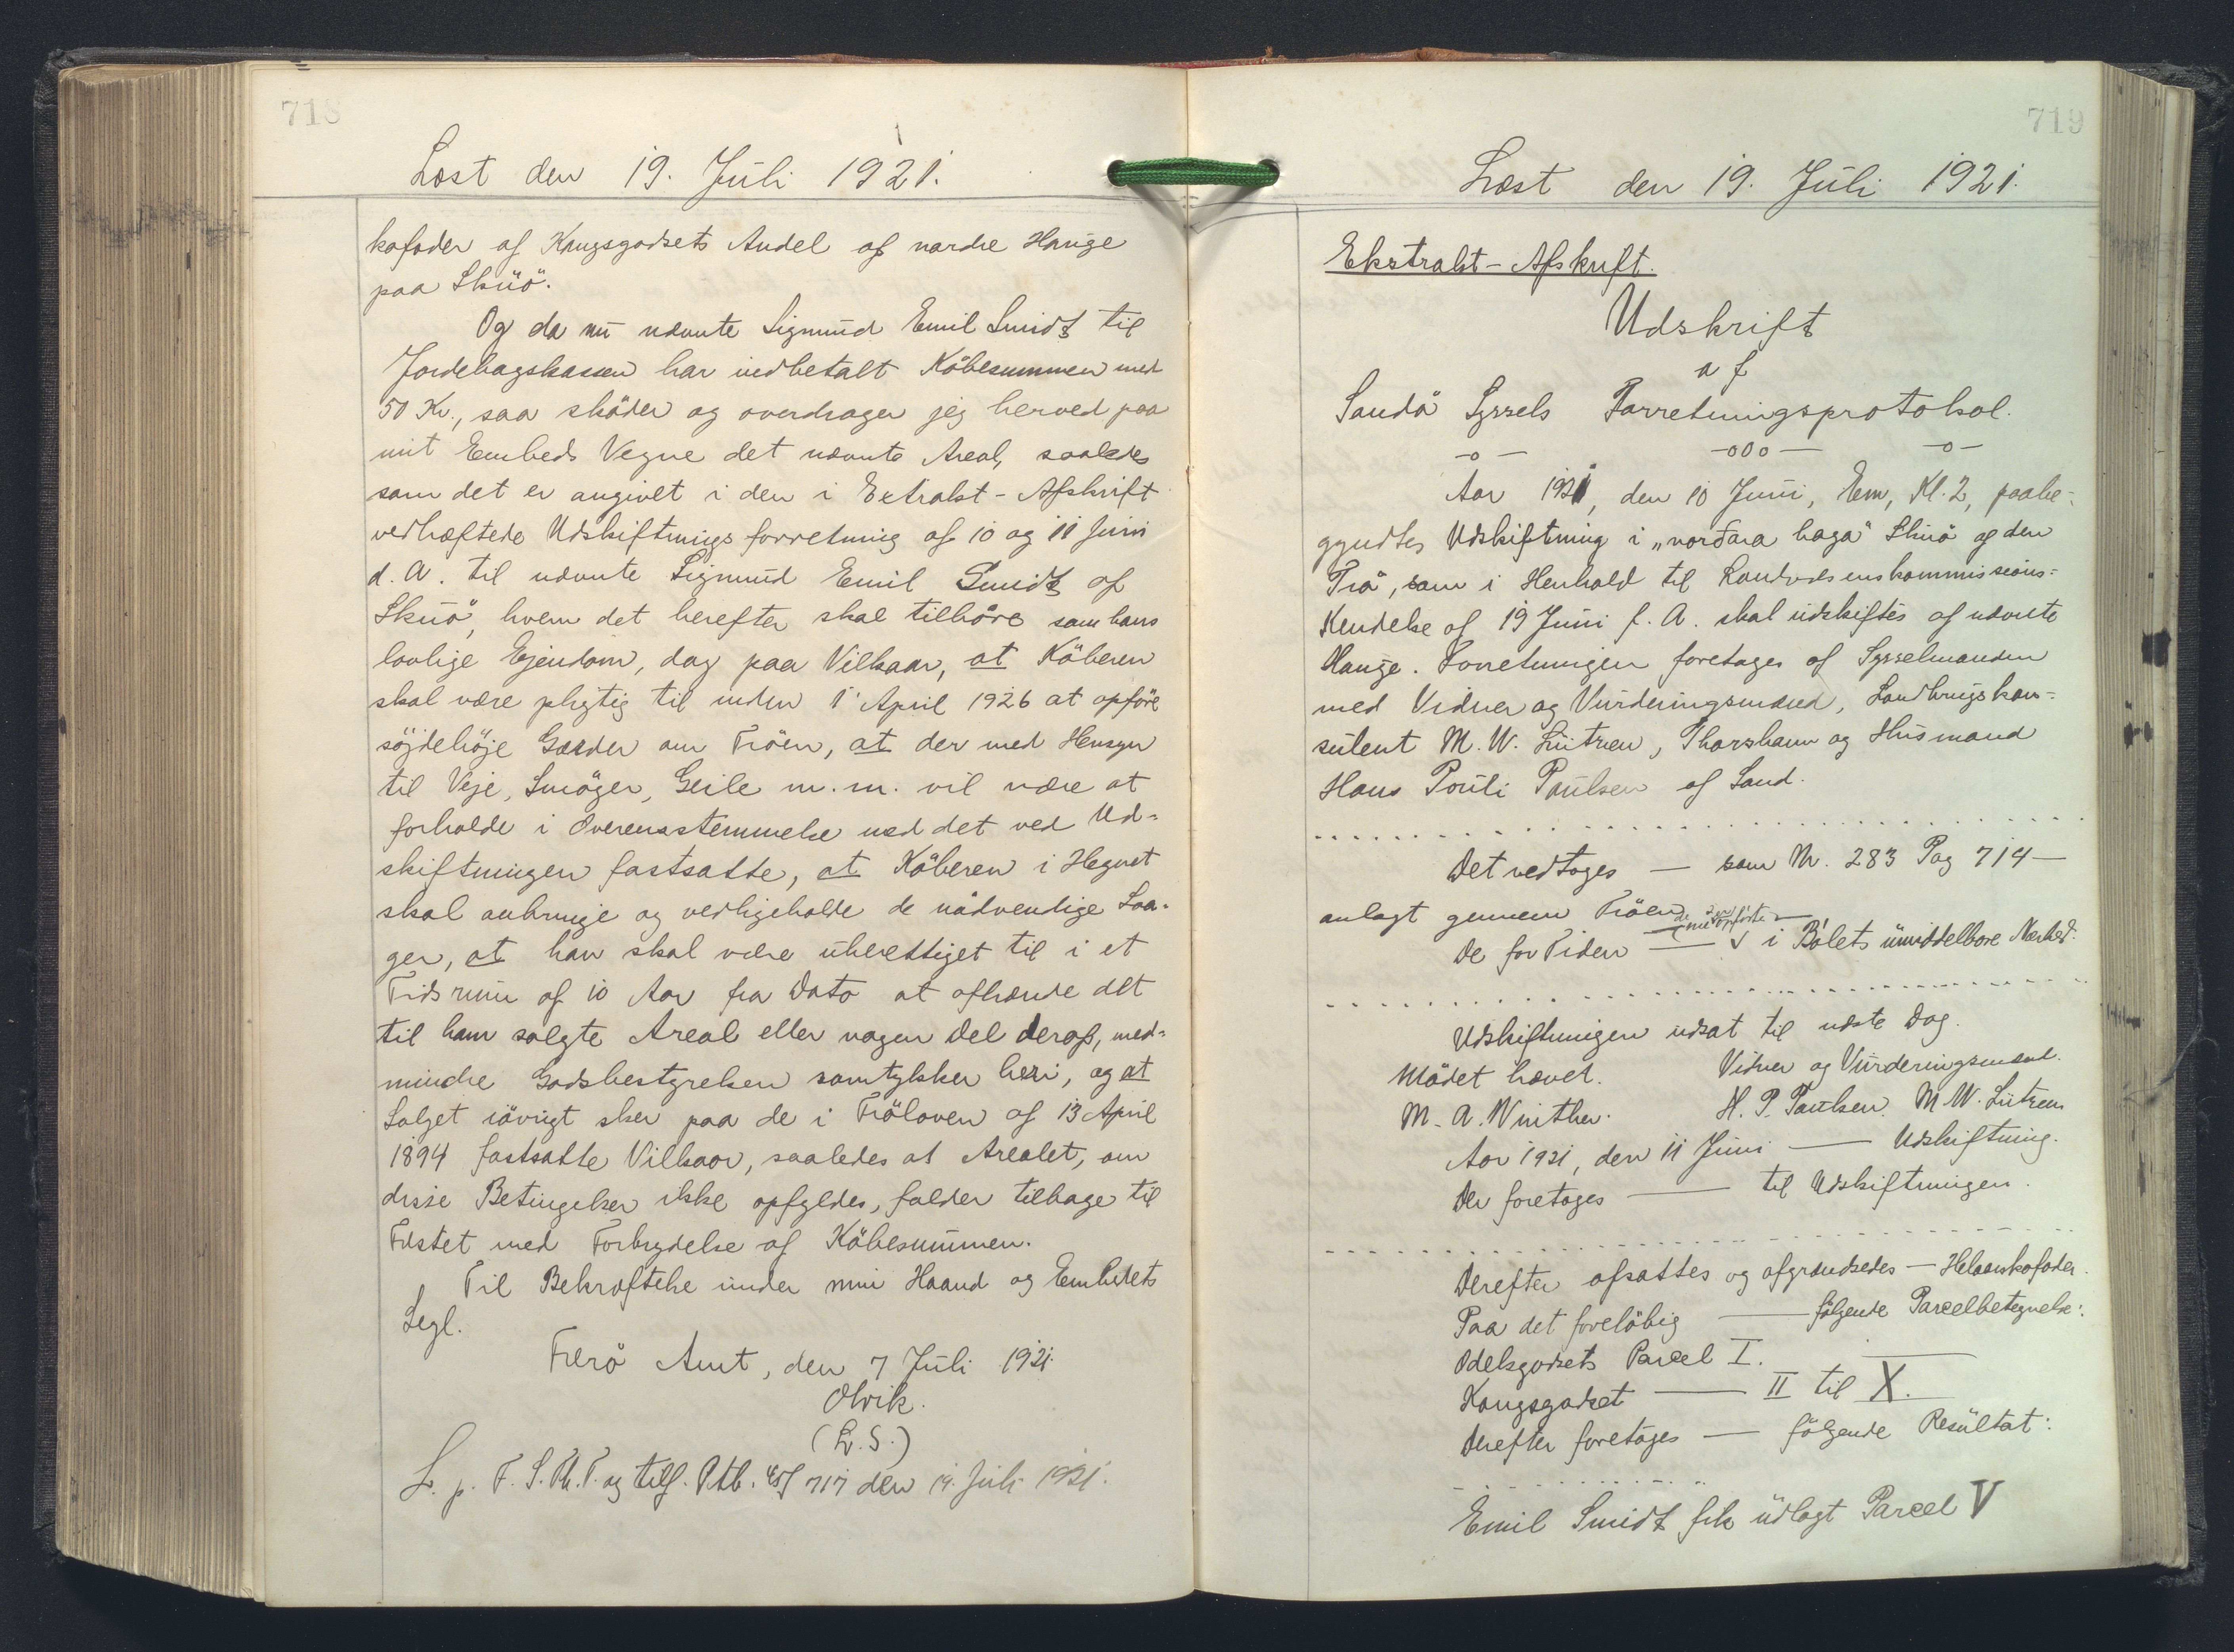 718
Læst den 19. Juli 1921.
kofoder af Kongsgodsets Andel af nordre Hauge
paa Skuö.
Og da nu nævnte Sigmund Emil Smidt til
Jordebogskassen har indbetalt Köbesummen med
50 Kr., saa sköder og overdrager jeg herved paa
mit Embeds Vegne det nævnte Areal, saaledes
som det er angivet i den i Extrakt-Afskrift
vedhæftede Udskiftningsforretning af 10 og 11 Juni
d. A. til nævnte Sigmund Emil Smidt af
Skuö, hvem det herefter skal tilhöre som hans
lovlige Ejendom, dog paa Vilkaar, at Köberen
skal være pligtig til inden 1' April 1926 at opföre
söjdehöje Gærder om Tröen, at der med Hensyn
til Veje, Smöger, Geile m.m. vil være at
forholde i Overensstemmelse med det ved Ud-
skiftningen fastsatte, at Köberen i Hegnet
skal anbringe og vedligeholde de nödvendige Laa-
ger, at han skal være uberettiget til i et
Tidsrum af 10 Aar fra Dato at afhænde det
til ham solgte Areal eller nogen Del deraf, med-
mindre Godsbestyrelsen samtykker heri, og at
Salget iövrigt sker paa de i Tröloven af 13 April
1894 fastsatte Vilkaar, saaledes at Arealet, om
disse Betingelser ikke opfyldes, falder tilbage til
Fæstet med Forbrydelse af Köbesummen.
Til Bekræftelse under min Haand og Embedets
Segl.
Færö Amt, den 7 Juli 1921.
Olrik.
(L.S.)
L. p. F. S. Th. T. og tilf. Ptb. 717 den 19. Juli 1921.
719
Læst den 19. Juli 1921.
Ekstrakt-Afskrift.
Udskrift
af
Sandö Syssels Forretningsprotokol.
-o- -o0o- -o-
Aar 1921, den 10 Juni, Em, Kl. 2, paabe-
gyndtes Udskiftning i „norðara haga“ Skuö af den
Trö, som i Henhold til Landvæsenskommissions-
Kendelse af 19 Juni f. A. skal udskiftes af nævnte
Hauge. Forretningen foretages af Sysselmanden
med Vidner og Vurderingsmænd, Landbrugskon-
sulent M. W. Lützen, Thorshavn og Husmand
Hans Pouli Poulsen af Sand.
Det vedtoges — som Nr. 283 Pag 714 —
anlagt gennem Tröen
De for Tiden — i Bölets umiddelbare Nærhed.
Udskiftningen udsat til næste Dag.
Mödet hævet. Vidner og Vurderingsmænd.
M. A. Winther. H. P. Poulsen. M. W. Lützen
Aar 1921, den 11 Juni — Udskiftning.
Der foretoges — til Udskiftningen.
Derefter afsattes og afgrændsedes — Helaarskofoder.
Paa det foreløbig — fölgende Parcelbetegnelse:
Odelsgodsets Parcel I.
Kongsgodset — II til X.
Derefter foretoges — fölgende Resultat:
Emil Smidt fik udlagt Parcel V